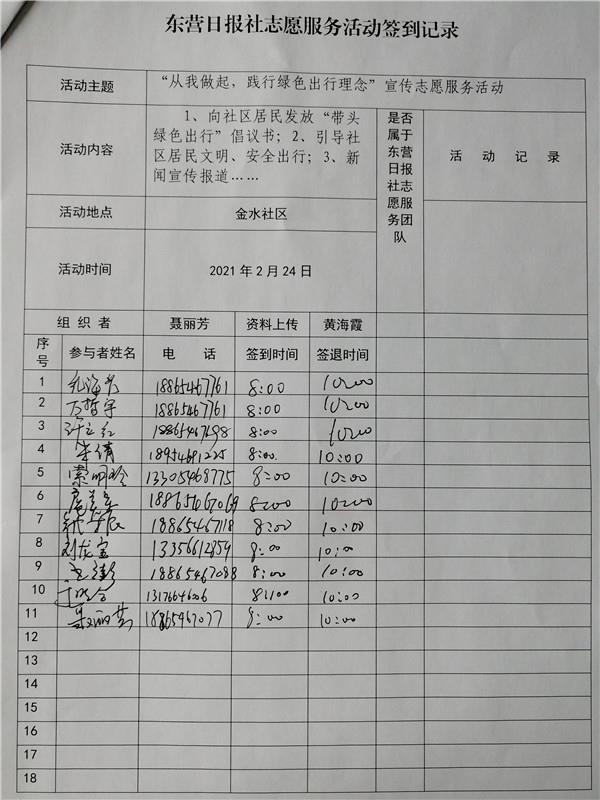 东营日报社志愿服务活动签到记录
活动主题 “从我做起，践行绿色出行理念”宣传志愿服务活动
活动内容
1、向社区居民发放“带头
绿色出行”倡议书；2、引导社
区居民文明、安全出行；3、新
闻宣传报道……
是否
属于
东营
日报
社志
愿服
务团
队
活 动 记 录
活动地点 金水社区
活动时间 2021 年 2 月 24 日
组 织 者 聂丽芳 资料上传 黄海霞
序号 参与者姓名 电 话 签到时间 签退时间
1 18865467761 8:00 10:00
2 万哲宇 18865467761 8:00 10:00
3 许立红 8:00 10:00
4 朱倩 18954691225 8:00 10:00
5 索明玲 13305468775 8:00 10:00
6 8:00 10:00
7 18865467118 8:00 10:00
8 刘龙宝 13356612859 8:00 10:00
9 18865467088 8:00 10:00
10 13176646006 8:00 10:00
11 聂丽芳 18865467077 8:00 10:00
12
13
14
15
16
17
18